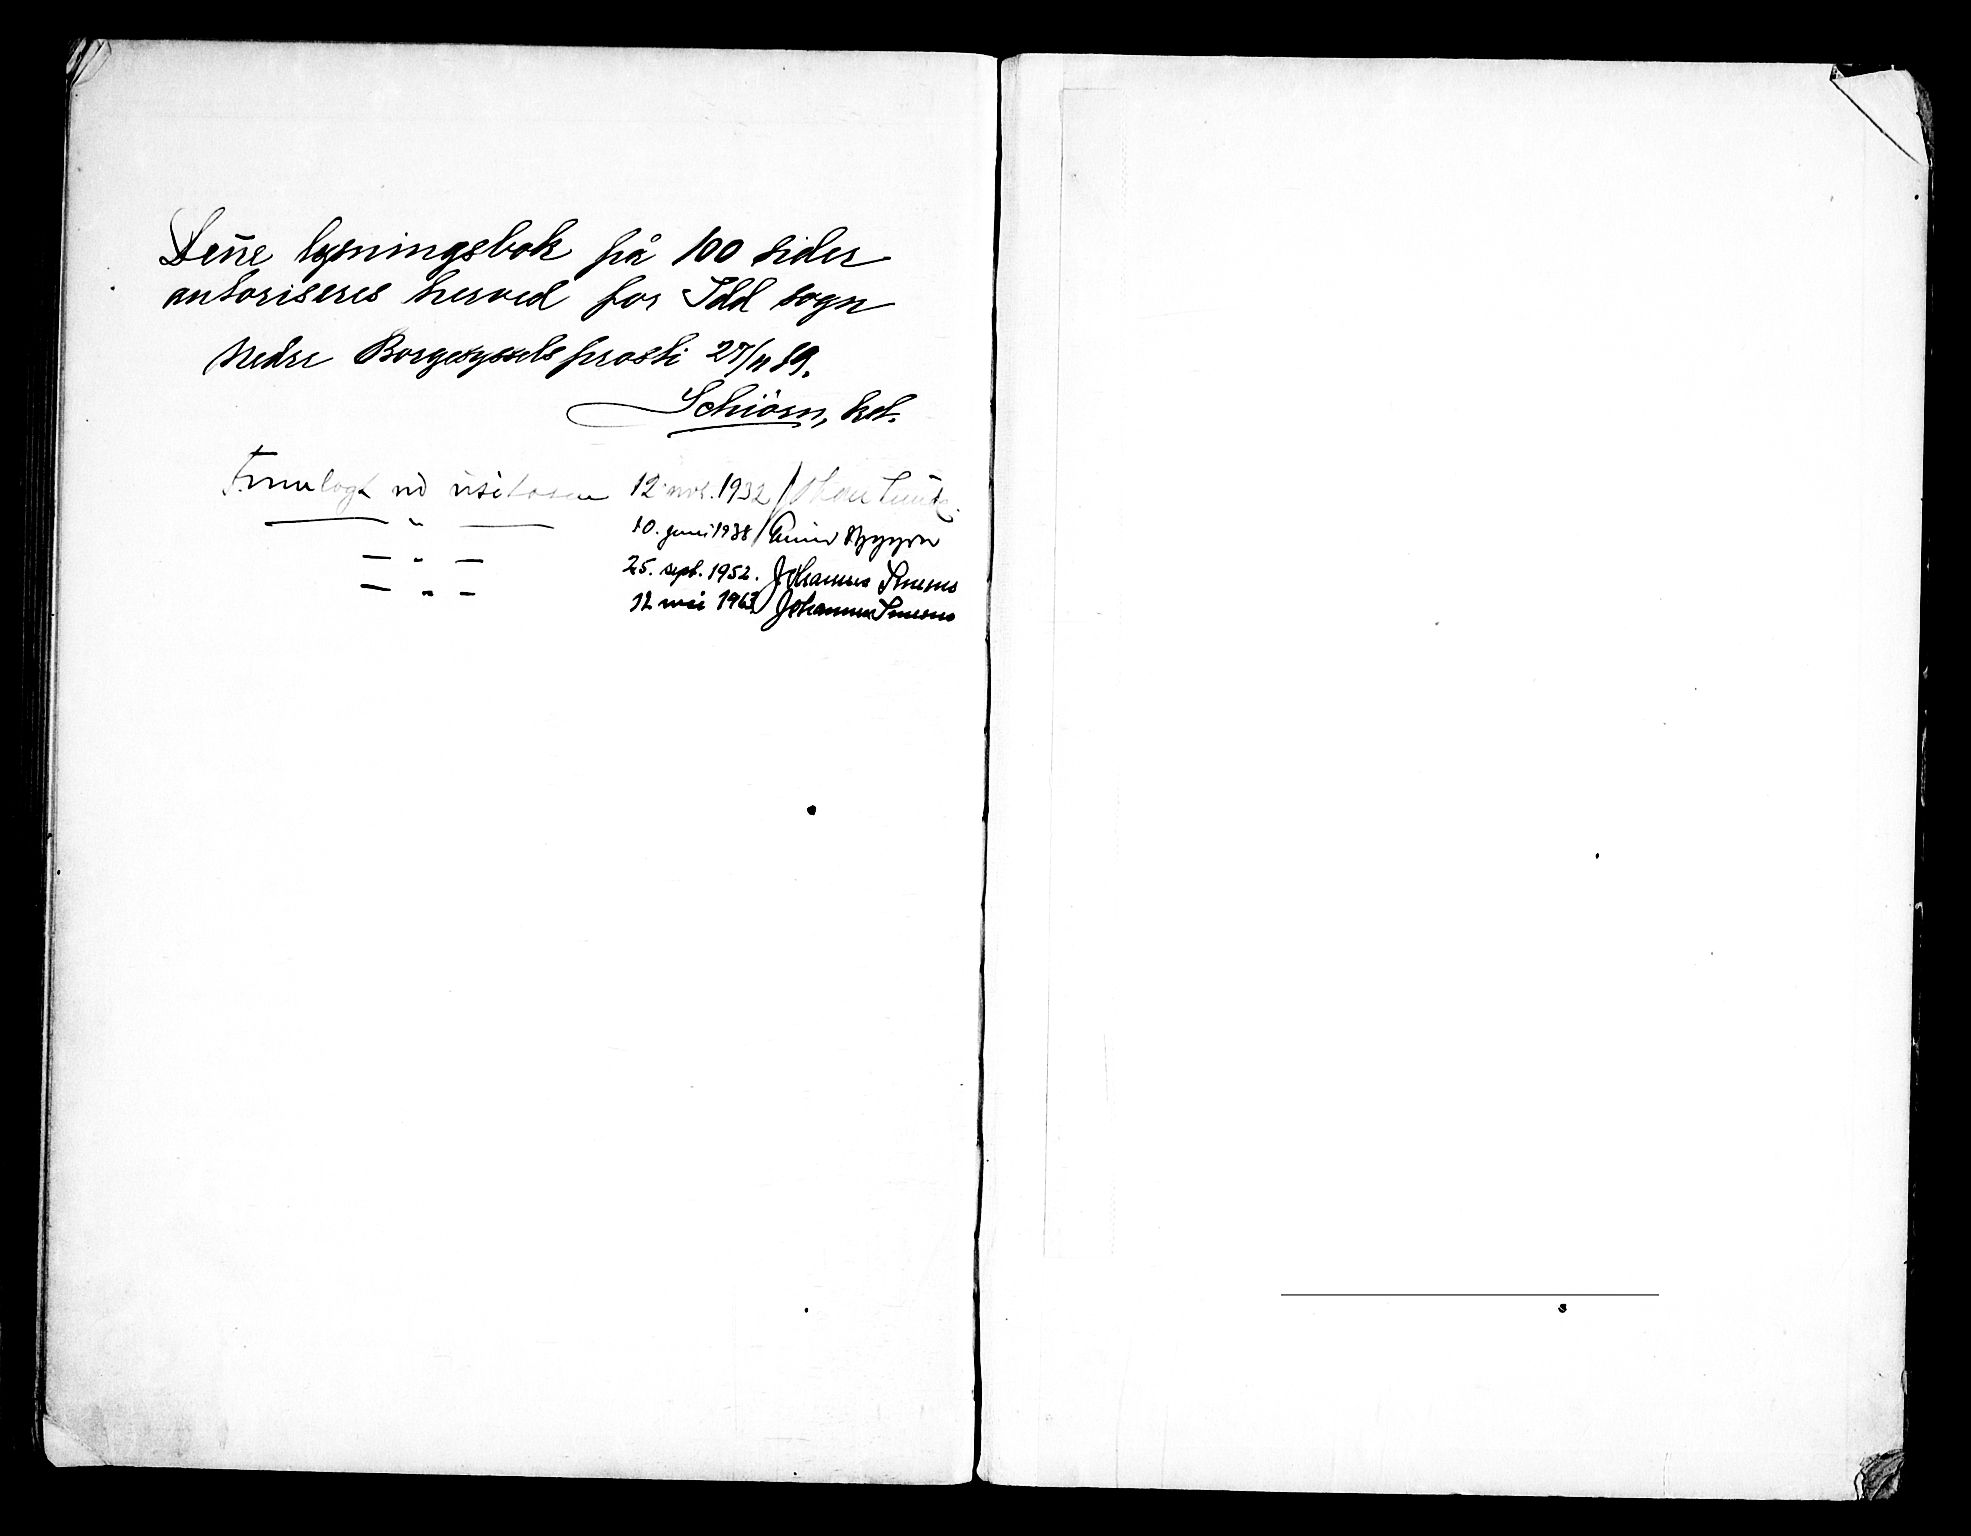 Denne lysningsbok på 100 sider
autoriseres herved for Idd sogn
Nedre Borgesyssels prosti 27/11 19.
Schiørn, kst.
Fremlagt ved visitasen 12 nov. 1932
— " — 10. juni 1938
— " — 25. sept. 1952. Johannes Smemo
— " — 12 mai 1963 Johannes Smemo